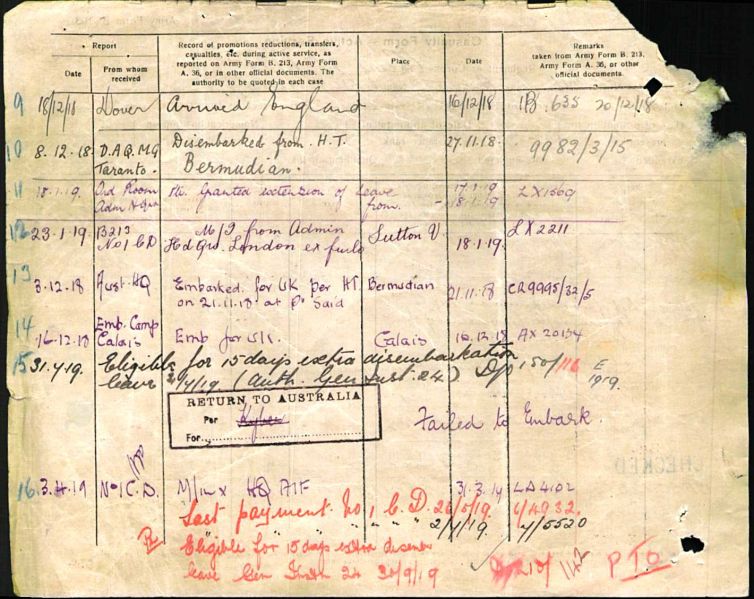 Report
Record of promotions reductions, transfers, casualties, etc. during active service, as reported on Army Form B. 213, Army Form A. 36, or in other official documents. The authority to be quoted in each case
Place
Date
Remarks taken from Army Form B. 213, Army Form A. 36, or other official documents.
Date
From whom received
9 18/12/18 Dover Arrived England 16/12/18 1B. 635 20/12/18
10 8.12.18. D.A.Q.M.G Disembarked from H.T. 27.11.18 9982/3/15
Taranto. Bermudian.
11 18.1.19. Ord Room Granted extension of Leave 17.1.19 LX1569
from. - 18.1.19
12 23.1.19 B213 M/I from Admin Sutton V. 18.1.19. LX2211
No 1 CD Hd Qrs. London ex furlo
13 3.12.18 Aust HQ Embarked for UK per HT Bermudian 21.11.18 CR9995/32/5
on 21.11.18 at P. Said
14 16.12.18 Emb Camp Calais Emb for UK. Calais 16.12.18 AX 20154
15 31.7.19. Eligible for 15 days extra disembarkation
leave 2/7/19 (Auth. Gen Inst. 24.) D/p 150/116 E 1919.
RETURN TO AUSTRALIA
Per Khyber
For
Failed to Embark.
16 3.4.19 No 1 C.D. M/in x HQ AIF 31.3.19 LA4102
Last payment No 1 C.D. 26/5/19. 4/4932.
" " " " 2/7/19. 4/5520
Eligible for 15 days extra disem
leave Gen Inst 24 30/9/19
P.T.O
CHECKED